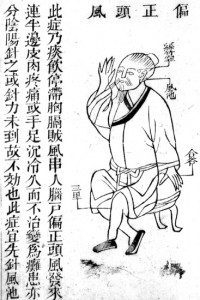 偏正頭風
絲竹空
風池
合谷
三里
此症乃痰飲停滯胸膈賊風串入腦戶偏正頭風發來
連半邊皮肉疼痛或手足沉冷久而不治變爲癱患亦
分陰陽針之或針力未到故不効也此症宜先針風池